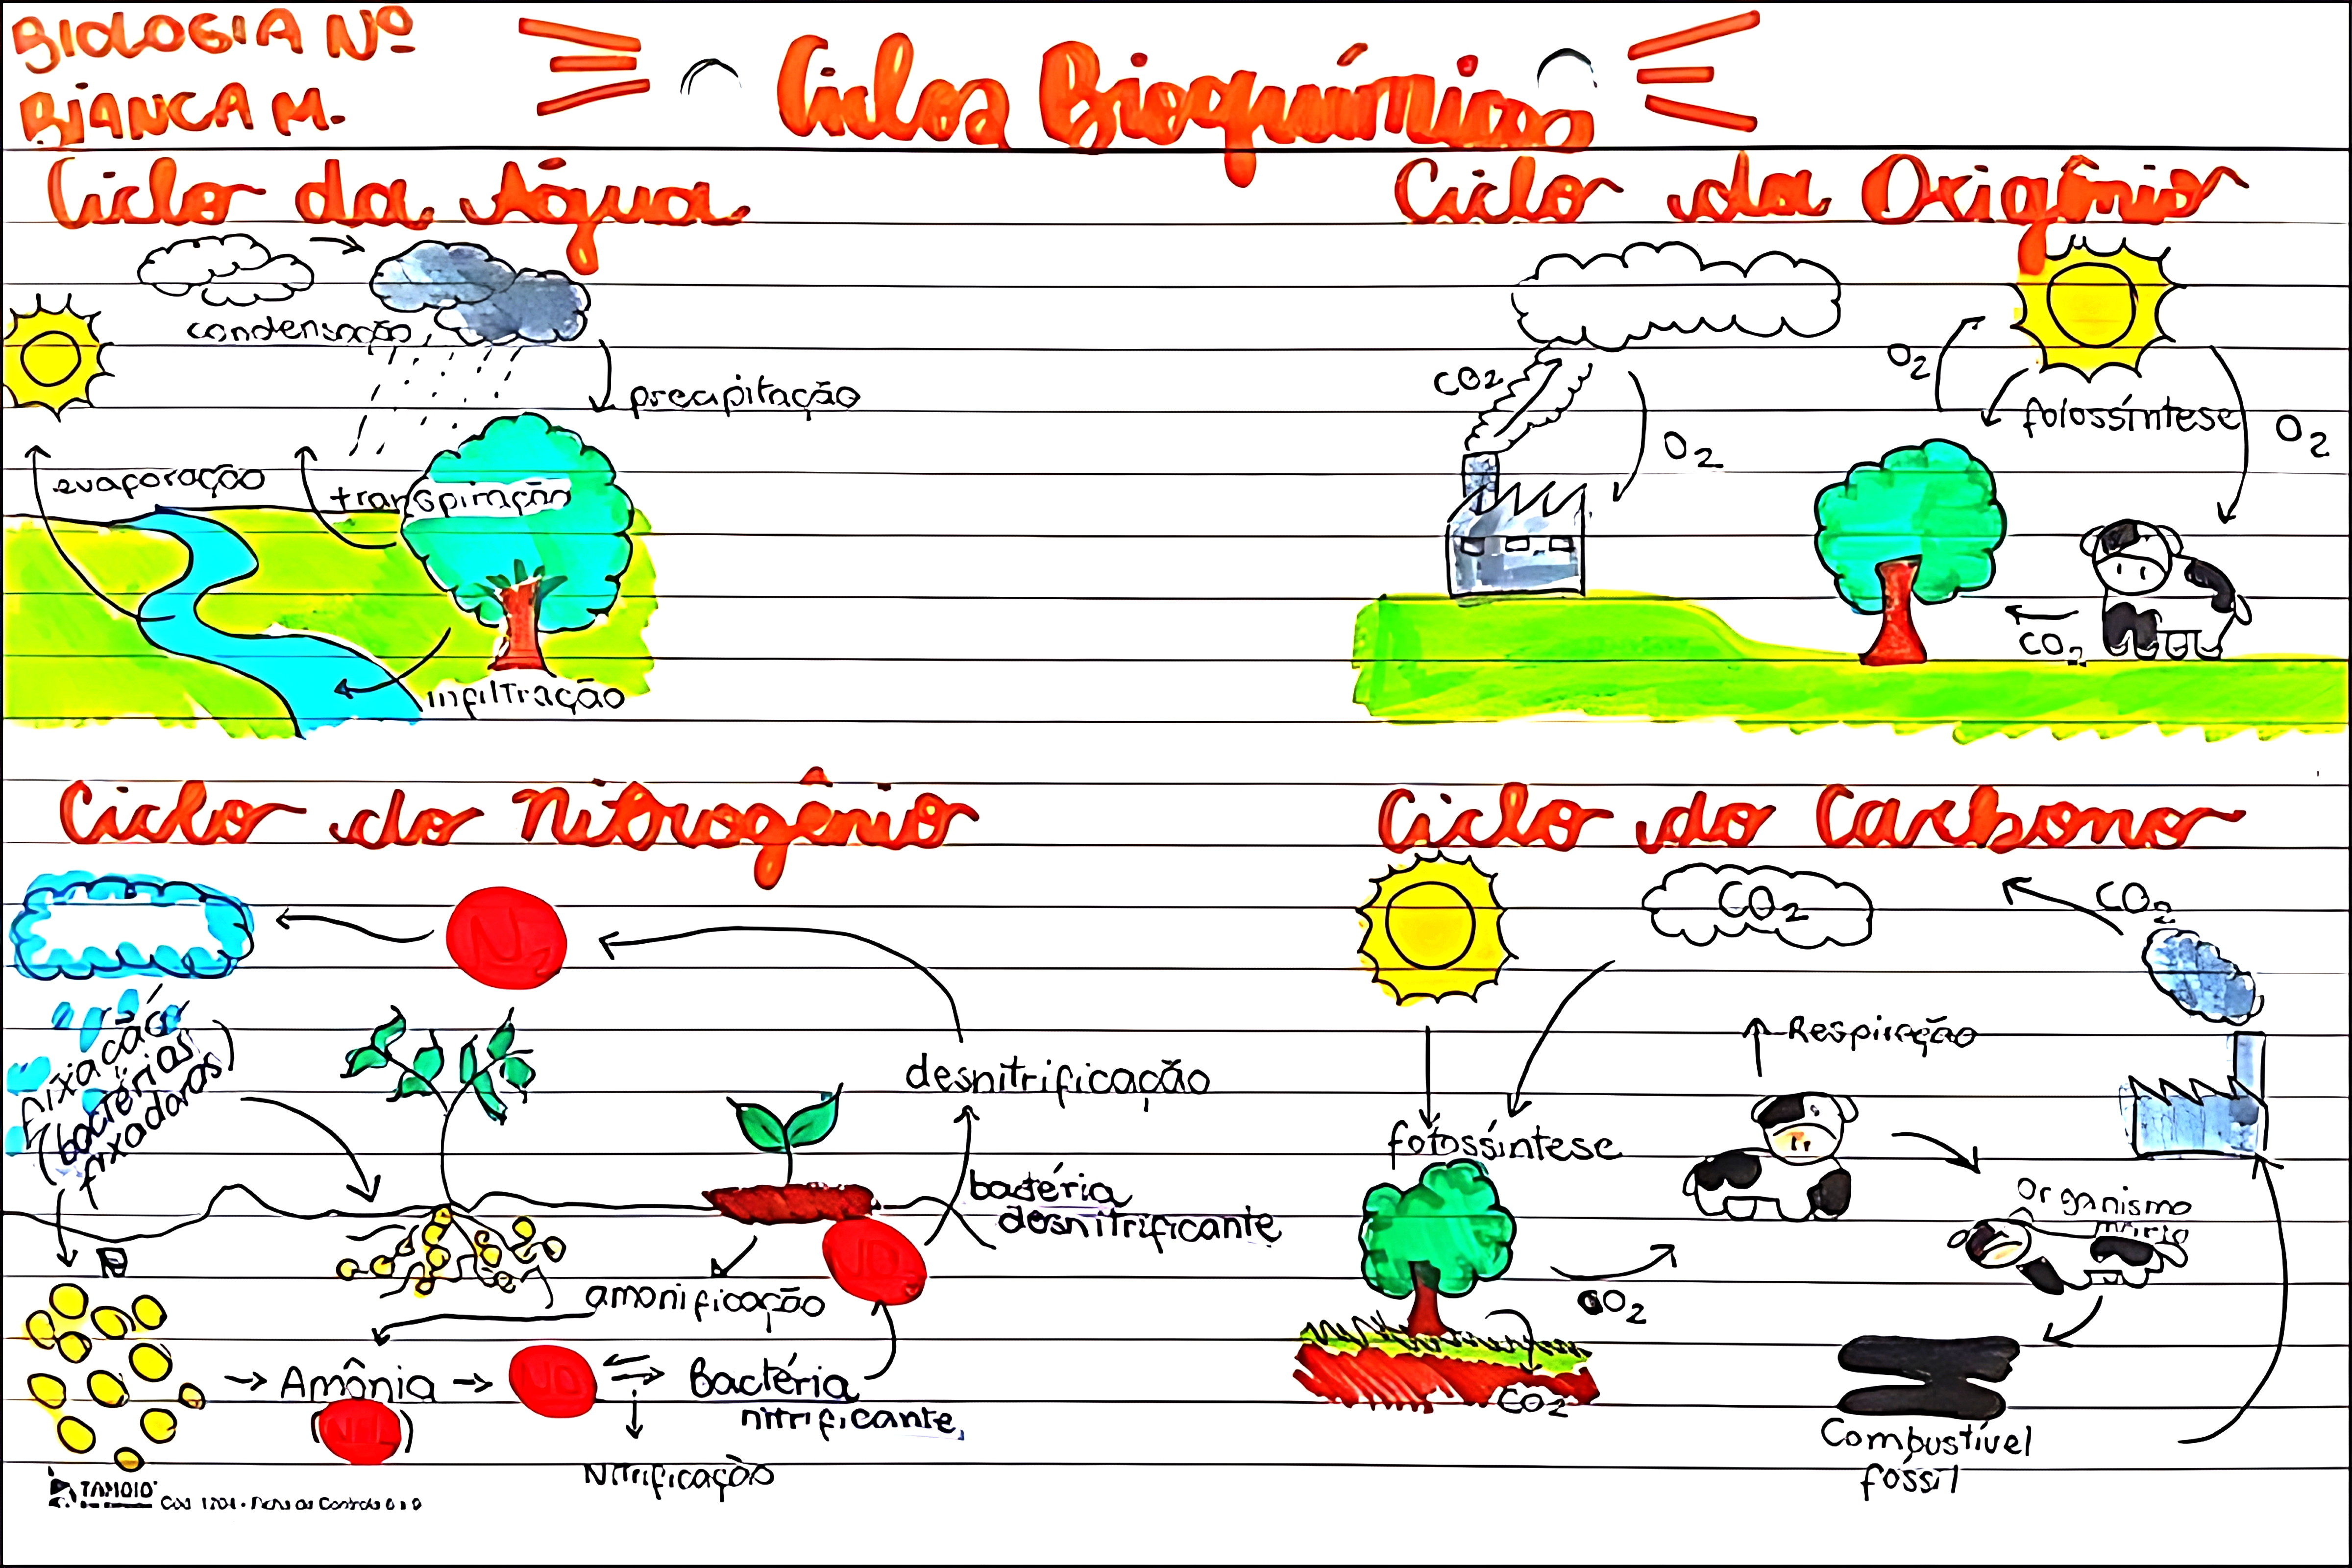 BIOLOGIA Nº
BIANCA M.
Ciclos Bioquímicos
Ciclo da Água
condensação
precipitação
evaporação
transpiração
infiltração
Ciclo da Oxigênio
CO2
O2
O2
fotossíntese
O2
CO2
Ciclo do Nitrogênio
N2
fixação
(bactérias
fixadoras)
desnitrificação
bactéria
desnitrificante
amonificação
NO
Amônia
NO
Bactéria
nitrificante
Nitrificação
TAMOIO
Ciclo do Carbono
CO2
CO2
Respiração
fotossíntese
Organismo
CO2
CO2
Combustível
fóssil